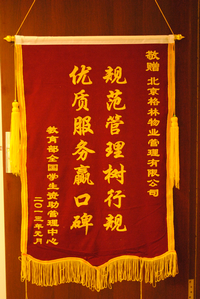 敬赠 北京格林物业管理有限公司
规范管理树行规
优质服务赢口碑
教育部全国学生资助管理中心
二〇一三年元月